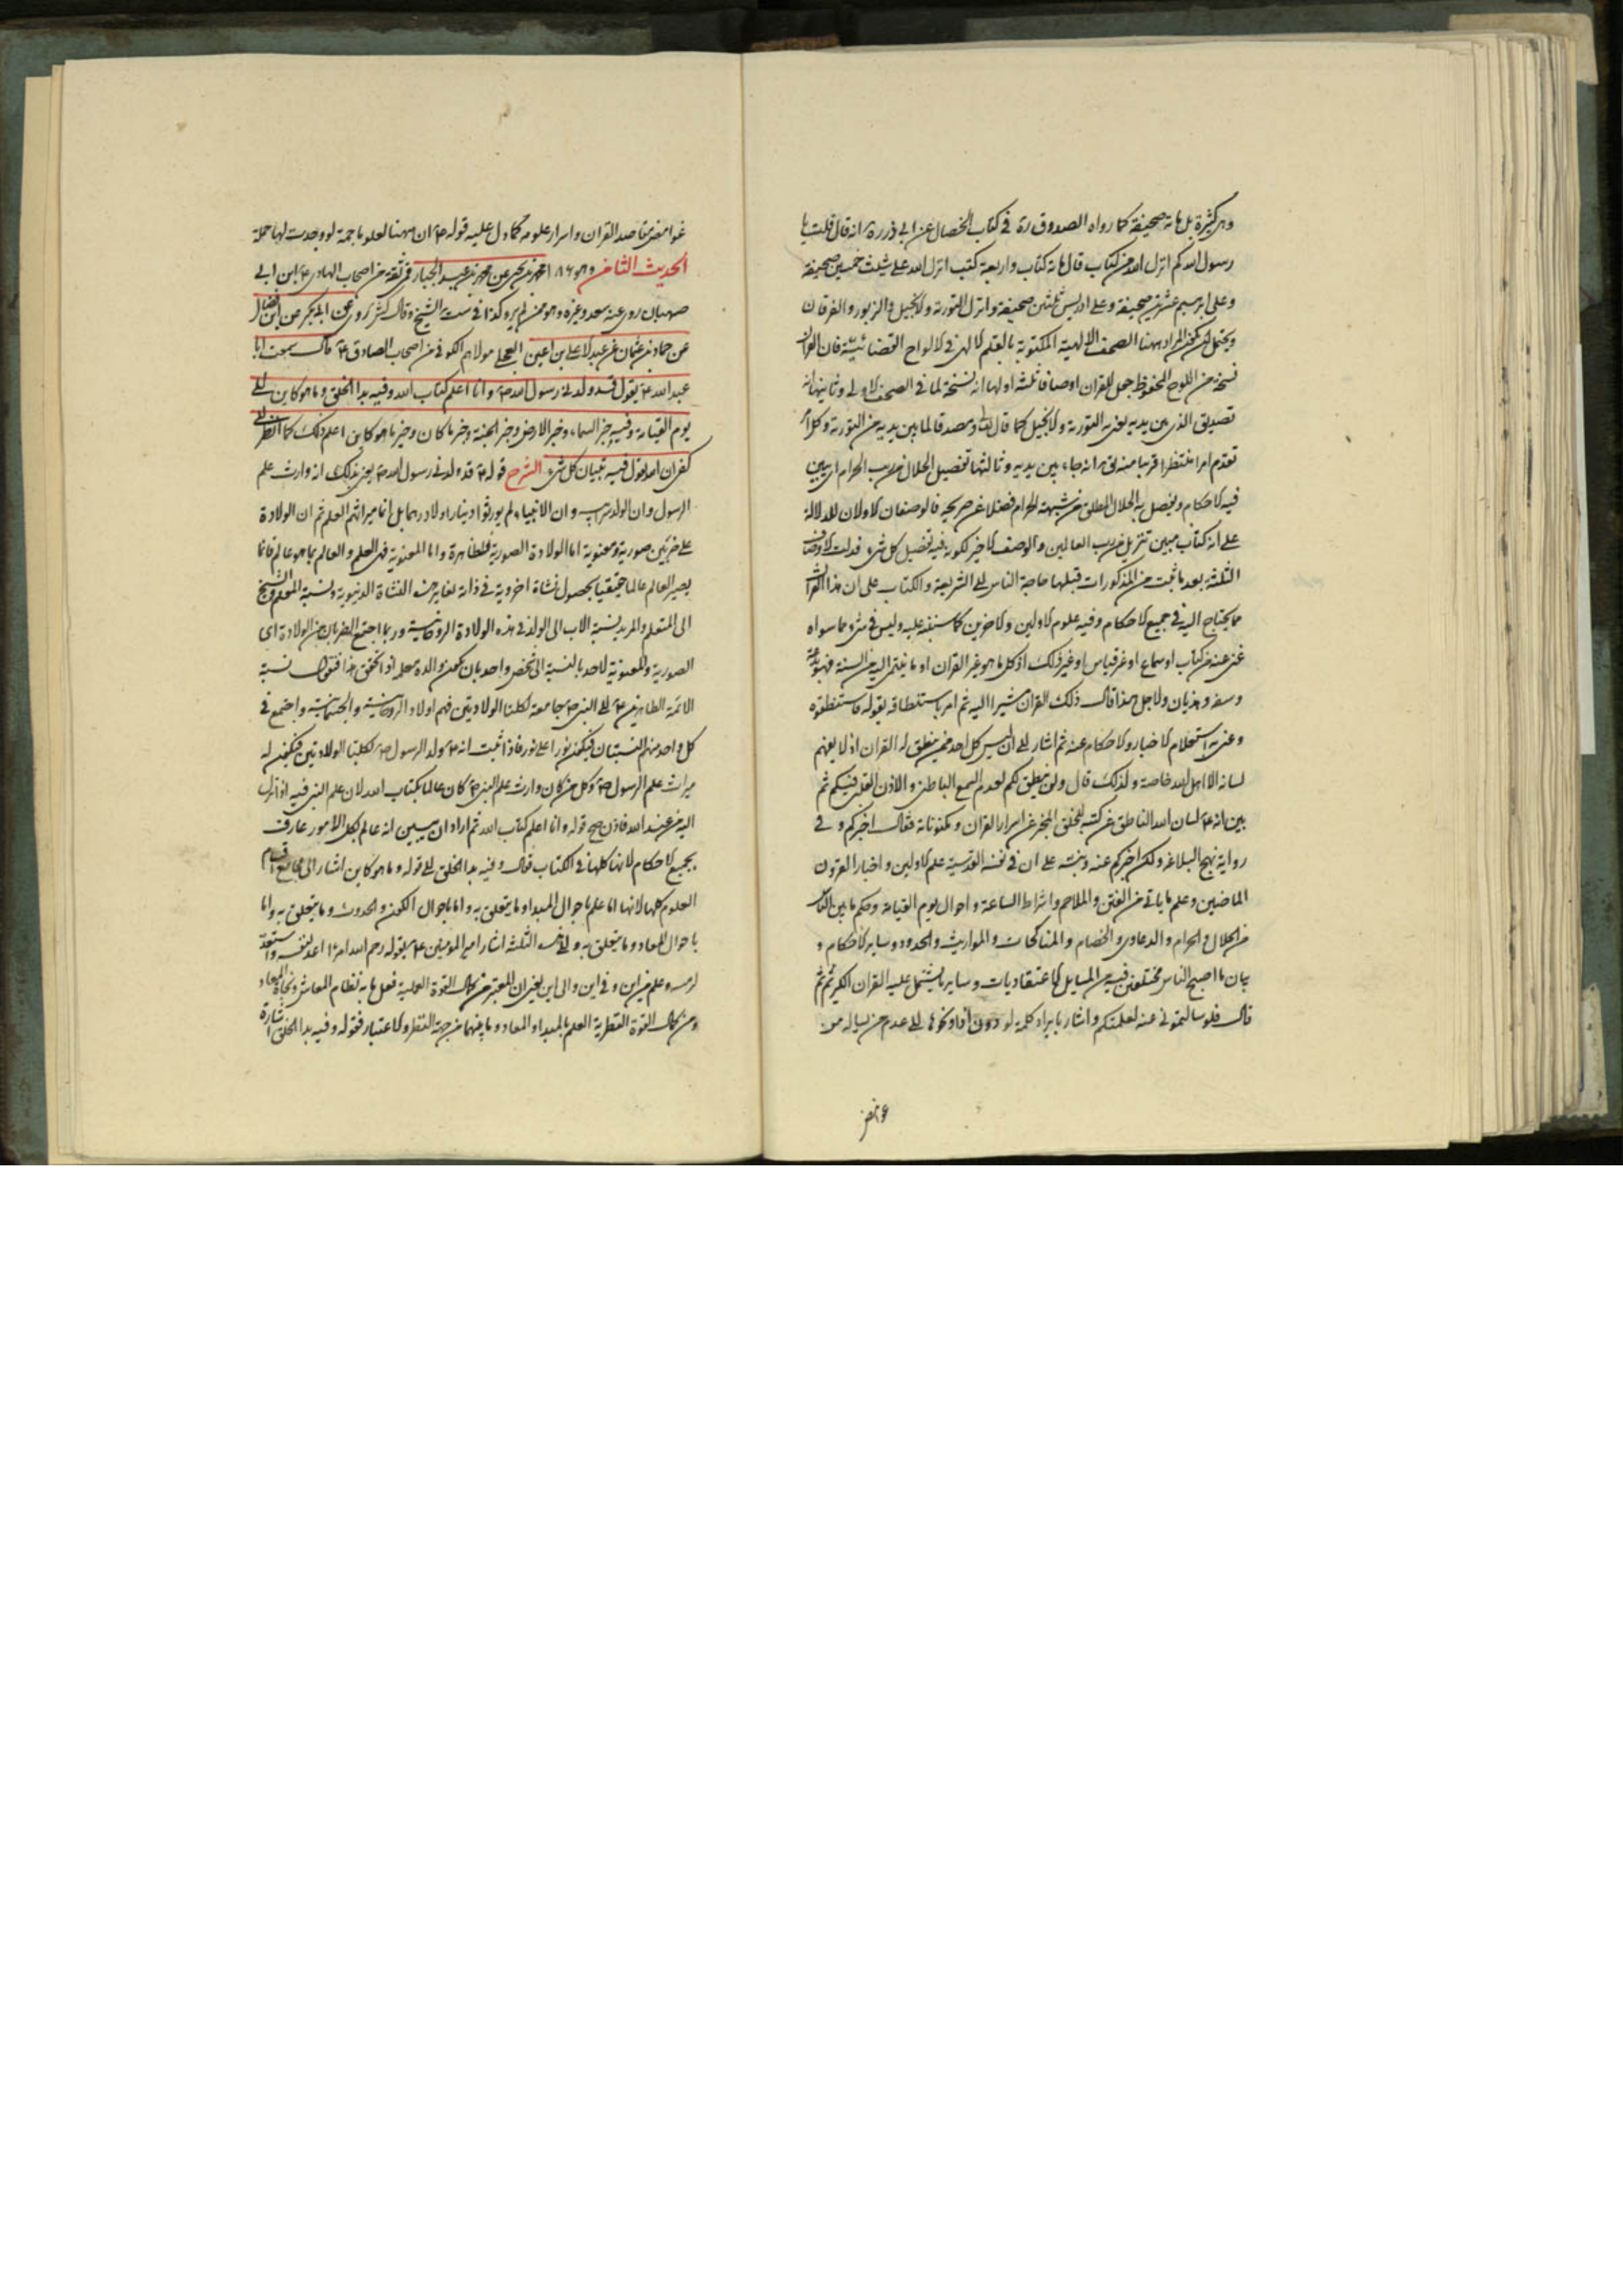 وهي كثيرة بل مائة صحيفة كما رواه الصدوق ره في كتاب الخصال عن ابي ذر ره انه قال قلت يا
رسول الله كم انزل الله من كتاب قال مائة كتاب واربعة كتب انزل الله على شيث خمسين صحيفة
وعلى ابرهيم عشرين صحيفة وعلى ادريس ثلثين صحيفة وانزل التورية والانجيل والزبور والفرقان
ويحتمل ان يكون المراد ههنا الصحف الالهية المكتوبة بالقلم الالهي في الالواح القضائية فان القران
نسخة من اللوح المحفوظ جعل للقران اوصافا ثلثة اولها انه نسخة لما في الصحف الاولى وثانيها انه
تصديق الذي بين يديه يعني به التورية والانجيل كما قال الله ومصدقا لما بين يديه من التورية وكل امر
تقدم امرا منتظرا قريبا منه يقال انه جاء بين يديه وثالثها تفصيل الحلال من ريب الحرام اي يبين
فيه الاحكام ويفصل به الحلال المطلق من شبهة الحرام فضلا عن صريحه فالوصفان الاولان للدلالة
على انه كتاب مبين تنزيل من رب العالمين والوصف الاخير لكونه فيه تفصيل كل شيء فدلت الاوصاف
الثلثة بعد ما ثبت من المذكورات قبلها حاجة الناس الى الشريعة والكتاب على ان هذا القران
مما يحتاج اليه في جميع الاحكام وفيه علوم الاولين والاخرين كما سننبه عليه وليس في شيء مما سواه
غنى عنه من كتاب او سماع او غير قياس او غير ذلك اذ كل ما هو غير القران او ما ينتمي اليه من السنة فهو بدعة
وسفه وهذيان ولاجل هذا قال ذلك القران مشيرا اليه ثم امر باستنطاقه بقوله فاستنطقوه
وعنى به استعلام الاخبار والاحكام عنه ثم اشار الى ان ليس كل احد ممن ينطق له القران اذ لا يفهم
لسانه الا اهل الله خاصة ولذلك قال ولن ينطق لكم لعدم السمع الباطن والاذن القلبي فيكم ثم
بين انه ع لسان الله الناطق عن كتبه للخلق المخبر عن اسرار القران ومكنوناته فقال اخبركم وفي
رواية نهج البلاغه ولكن اخبركم عنه ونبه على ان في نفسه القدسية علم الاولين واخبار القرون
الماضين وعلم ما ياتي من الفتن والملاحم واشراط الساعة واحوال يوم القيامة وحكم ما بين الناس
من الحلال والحرام والدعاوي والخصام والمناكحات والمواريث والحدود وساير الاحكام و
بيان ما اصبح الناس مختلفين فيه من المسايل الاعتقاديات وساير ما يشتمل عليه القران الكريم ثم
قال فلو سالتموني عنه لعلمتكم واشار بايراد كلمة لو دون اذا ونحوها الى عدم من يساله عن
غوامض
غوامض مقاصد القران واسرار علومه كما دل عليه قوله ع ان ههنا لعلوما جمة لو وجدت لها حملة
الحديث الثامن وهو ١٨٦ محمد بن يحيى عن محمد بن عبد الجبار قمي ثقة من اصحاب الهادي ع ابن ابي
صهبان روى عنه سعد وغيره وهو ممن لم يرو كذا في ست الشيخ وقال كش روى عن ابي بكير عن ابن فضال
عن حماد بن عثمان عن عبد الاعلى بن اعين العجلي مولاهم الكوفي من اصحاب الصادق ع قال سمعت ابا
عبد الله ع يقول قد ولدني رسول الله ص وانا اعلم كتاب الله وفيه بدا الخلق وما هو كاين الى
يوم القيامة وفيه خبر السماء وخبر الارض وخبر الجنة وخبر ما كان وخبر ما هو كاين اعلم ذلك كما انظر الى
كفي ان الله يقول فيه تبيان كل شيء الشرح قوله ع قد ولدني رسول الله ص يعني بذلك انه وارث علم
الرسول وان الولد سر ابيه وان الانبياء لم يورثوا دينارا ولا درهما بل انما ميراثهم العلم ثم ان الولادة
على ضربين صورية ومعنوية اما الولادة الصورية فظاهرة واما المعنوية فهي العلم والعالم بما هو عالم فانما
يصير العالم عالما حقيقيا بحصول نشاة اخروية في ذاته لغاير هذه النشاة الدنيوية ونسبة المعلم والشيخ
الى المتعلم والمريد نسبة الاب الى الولد في هذه الولادة الروحانية وربما اجتمع الضربان من الولادة اي
الصورية والمعنوية لاحد بالنسبة الى شخص واحد بان يكون والده معلمه اذا تحقق هذا فنقول نسبة
الائمة الطاهرين ع الى النبي ص جامعة لكلتا الولادتين فهم اولاده الروحانية والجسمانية واجتمع في
كل واحد منهم النسبتان فيكون نورا على نور فاذا ثبت انه ع ولد الرسول ص بكلتا الولادتين فيكون له
ميراث علم الرسول ص وكل من كان وارث علم النبي ص كان عالما بكتاب الله لان علم النبي فيه اذ انزل
اليه من عند الله فاذن صح قوله وانا اعلم كتاب الله ثم اراد ان يبين انه عالم بكل الامور عارف
بجميع الاحكام لانها كلها في الكتاب فقال وفيه بدا الخلق الى قوله وما هو كاين اشار الى مجامع اقسام
العلوم كلها لانها اما علم باحوال المبدا وما يتعلق به واما باحوال الكون والحدوث وما يتعلق به واما
باحوال المعاد وما يتعلق به والى هذه الثلثة اشار امير المؤمنين ع بقوله رحم الله امرءا اعد لنفسه واستعد
لرمسه وعلم من اين وفي اين والى اين يعني ان المعتبر من كمال القوة العملية فعل ما به نظام المعاش ونجاة المعاد
ومن كمال القوة النظرية العلم بالمبدا والمعاد وما بينهما من جهة النظر والاعتبار فقوله وفيه بدا الخلق اشارة